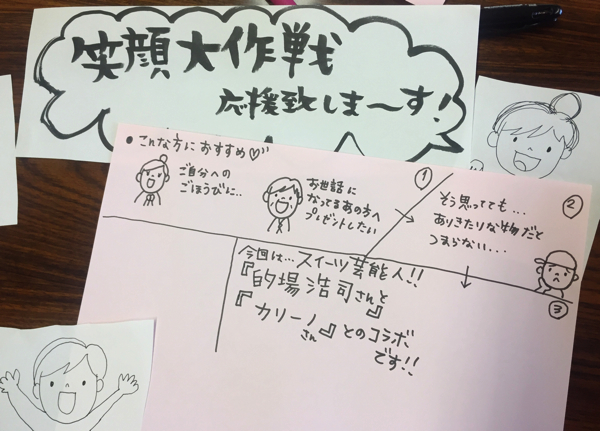 笑顔大作戦
応援致しま〜す!
• こんな方におすすめ♡
ご自分への
ごほうびに…
お世話に
なってるあの方へ
プレゼントしたい
①
②
そう思ってても…
ありきたりな物だと
つまらない…
③
今回は…スイーツ芸能人!!
『的場浩司さんと』
『カリーノさん』とのコラボ
です!!